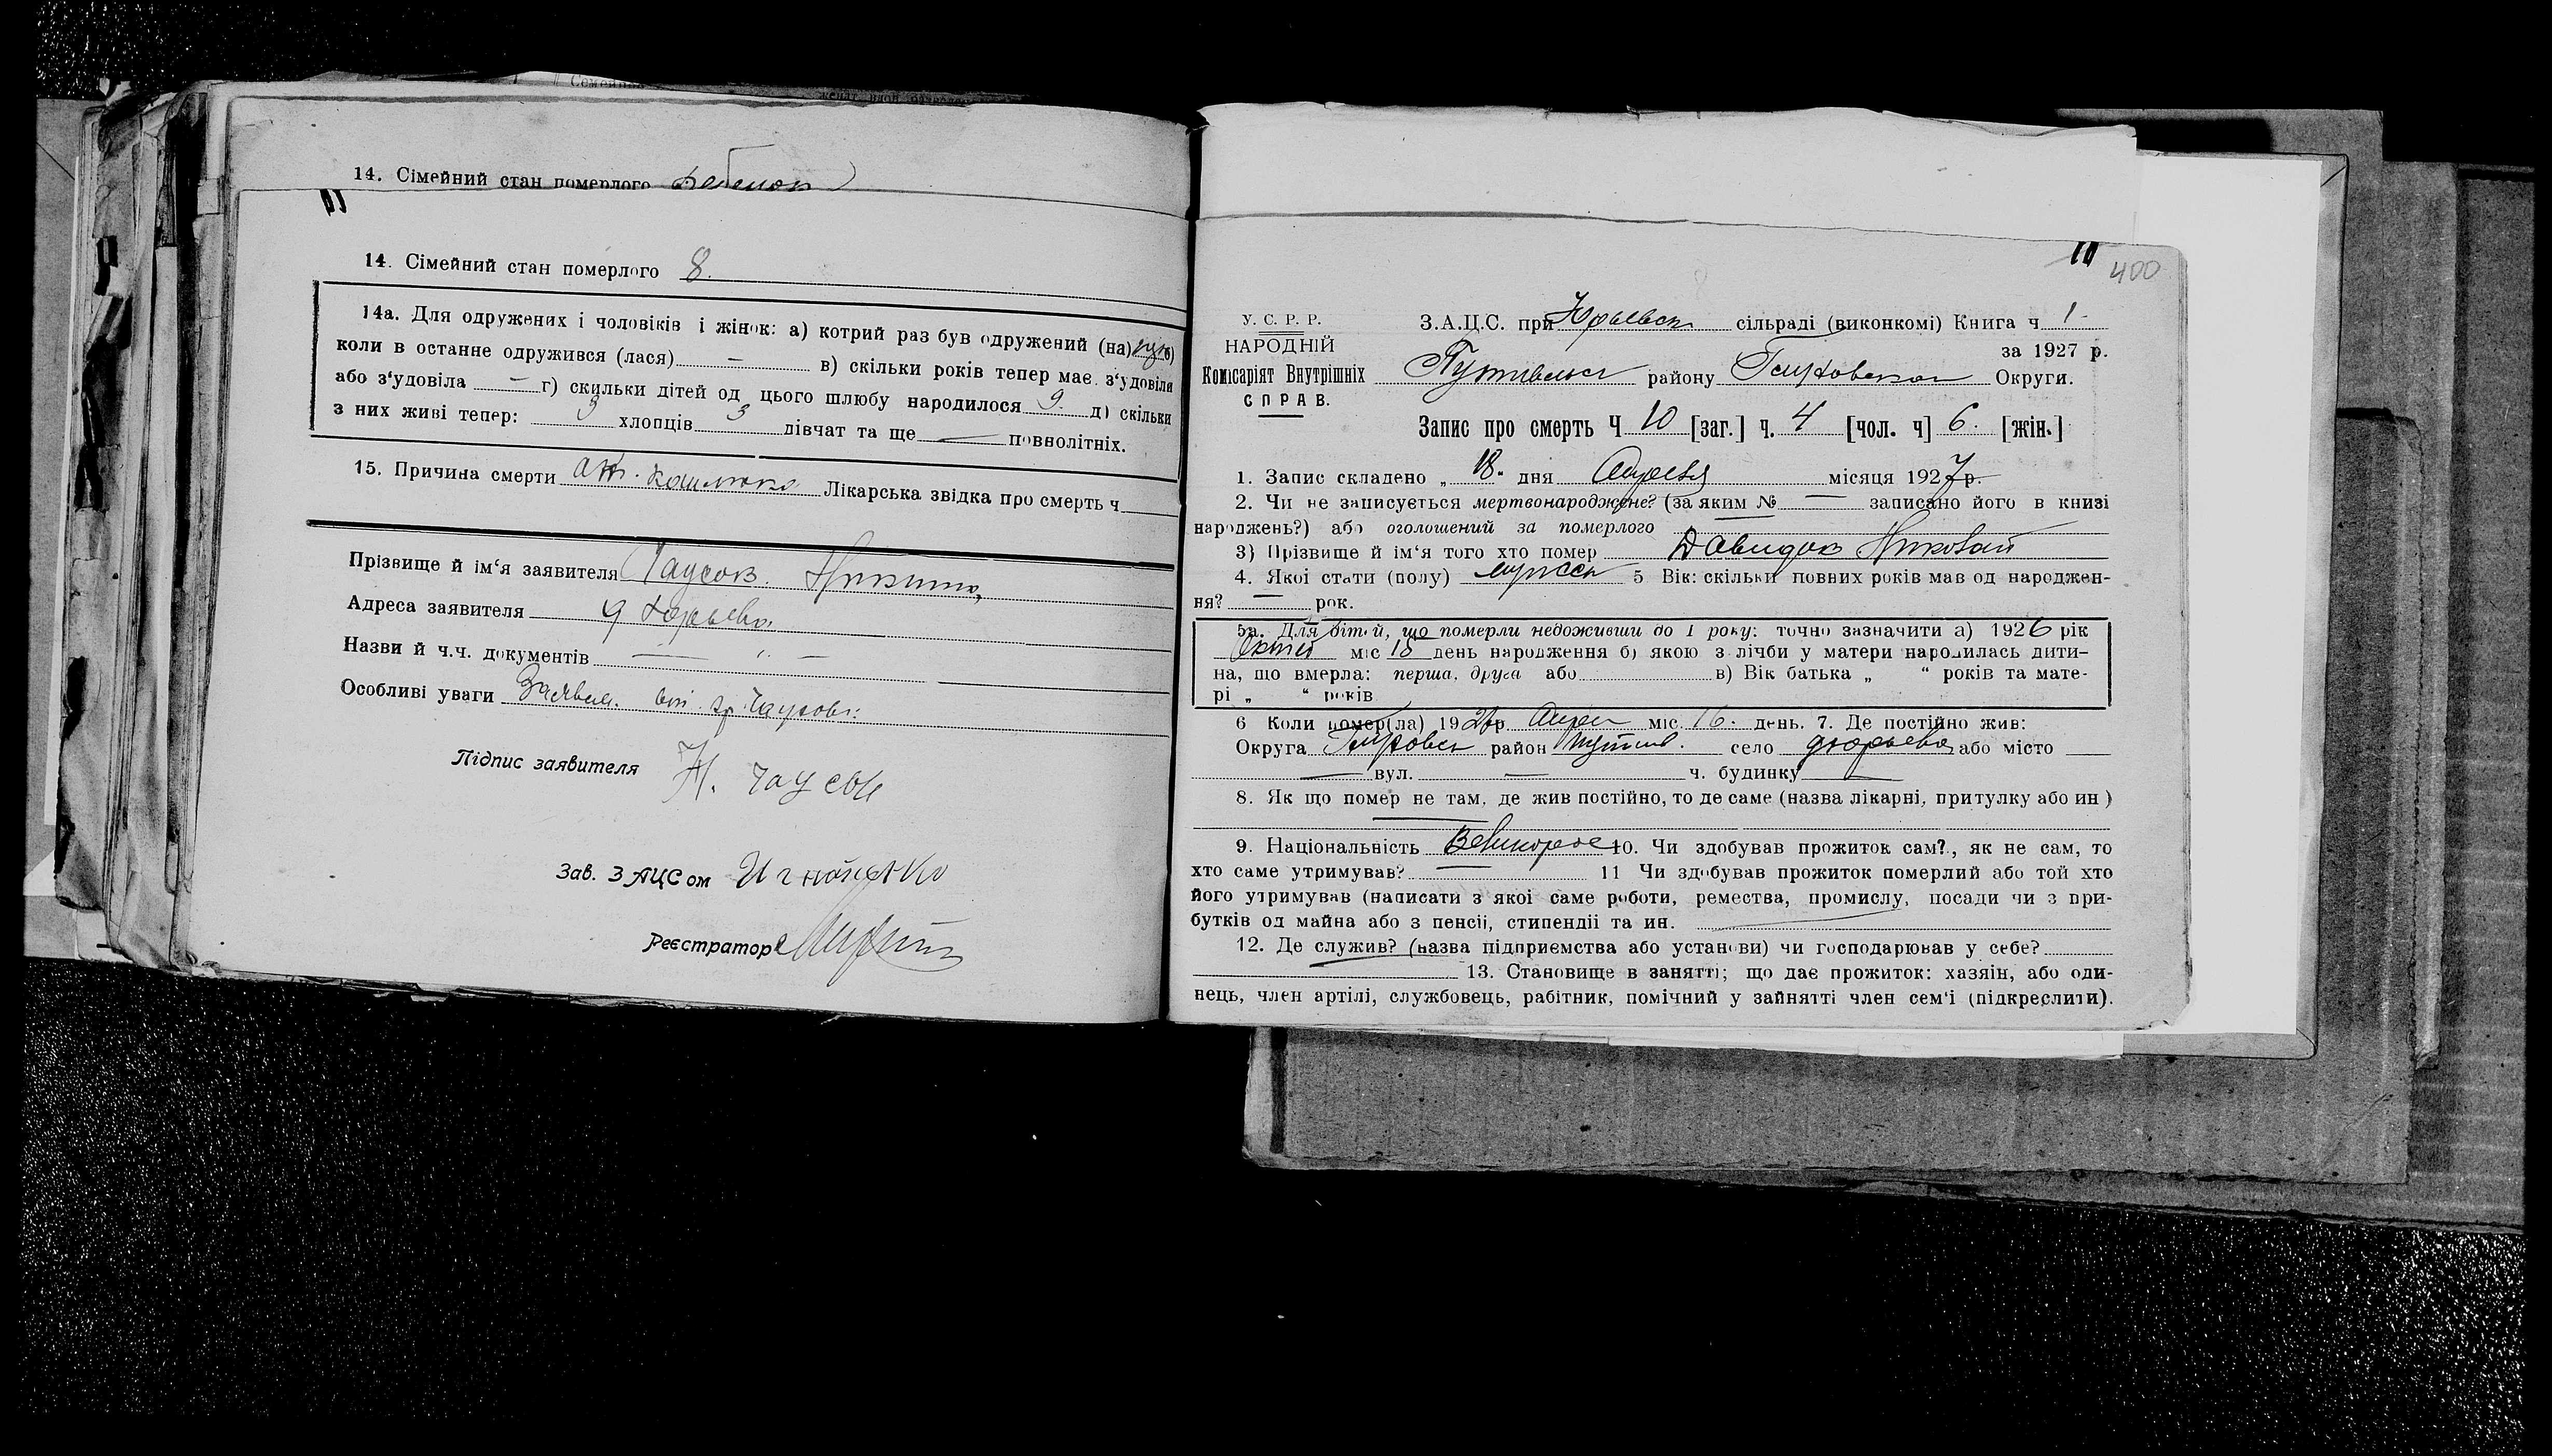 14. Сімейний стан померлого ребенок
14. Сімейний стан померлого 8.
14а. Для одружених і чоловіків і жінок: а) котрий раз був одружений (на)
коли в останне одружився (лася) — в) скільки років тепер має з'удовіла
або з'удовіла — г) скильки дітей од цього шлюбу народилося 9. д) скільки
з них живі тепер: 3 хлопців 3 дівчат та ще — повнолітніх.
15. Причина смерти от кашлюка Лікарська звідка про смерть ч
Прізвище й ім'я заявителя Чаусов Никита
Адреса заявителя Юрьева
Назви й ч.ч. документів — " —
Особливі уваги Заявил. гр. Чаусов
Підпис заявителя Н. Чаусов
Зав. ЗАЦСом Игнатенко
Реєстратор
400
У. С. Р. Р.
НАРОДНІЙ
Комісаріят Внутрішніх
СПРАВ.
З.А.Ц.С. при Юрьевск сільраді (виконкомі) Книга ч 1
за 1927 р.
Путивльск району Глуховской Округи.
Запис про смерть Ч 10 [заг.] ч. 4 [чол. ч] 6. [жін.]
1. Запис складено „ 18. дня Апреля місяця 1927 р.
2. Чи не записується мертвонароджене? (за яким № — записано його в книзі
народжень?) або оголошений за померлого
3) Прізвище й ім'я того хто помер Давидов Николай
4. Якої стати (полу) мужеск 5 Вік: скільки повних років мав од народжен-
ня? — рок.
5а. Для дітей, що померли недоживши до 1 року: точно зазначити а) 1926 рік
Октяб міс 18 день народження б) якою з лічби у матери народилась дити-
на, що вмерла: перша, друга або в) Вік батька „ “ років та мате-
рі „ “ років
6 Коли помер(ла) 1927 р. Апрел міс. 16. день. 7. Де постійно жив:
Округа Глуховск район Путивл. село Юрьево або місто
— вул. — ч. будинку —
8. Як що помер не там, де жив постійно, то де саме (назва лікарні, притулку або ин )
9. Національність Великорос 10. Чи здобував прожиток сам?, як не сам, то
хто саме утримував? — 11 Чи здобував прожиток померлий або той хто
його утримував (написати з якої саме роботи, ремества, промислу, посади чи з при-
бутків од майна або з пенсії, стипендії та ин.
12. Де служив? (назва підприємства або установи) чи господарював у себе?
13. Становище в занятті; що дає прожиток: хазяін, або оди-
нець, член артілі, службовець, рабітник, помічний у зайнятті член сем'ї (підкреслити).